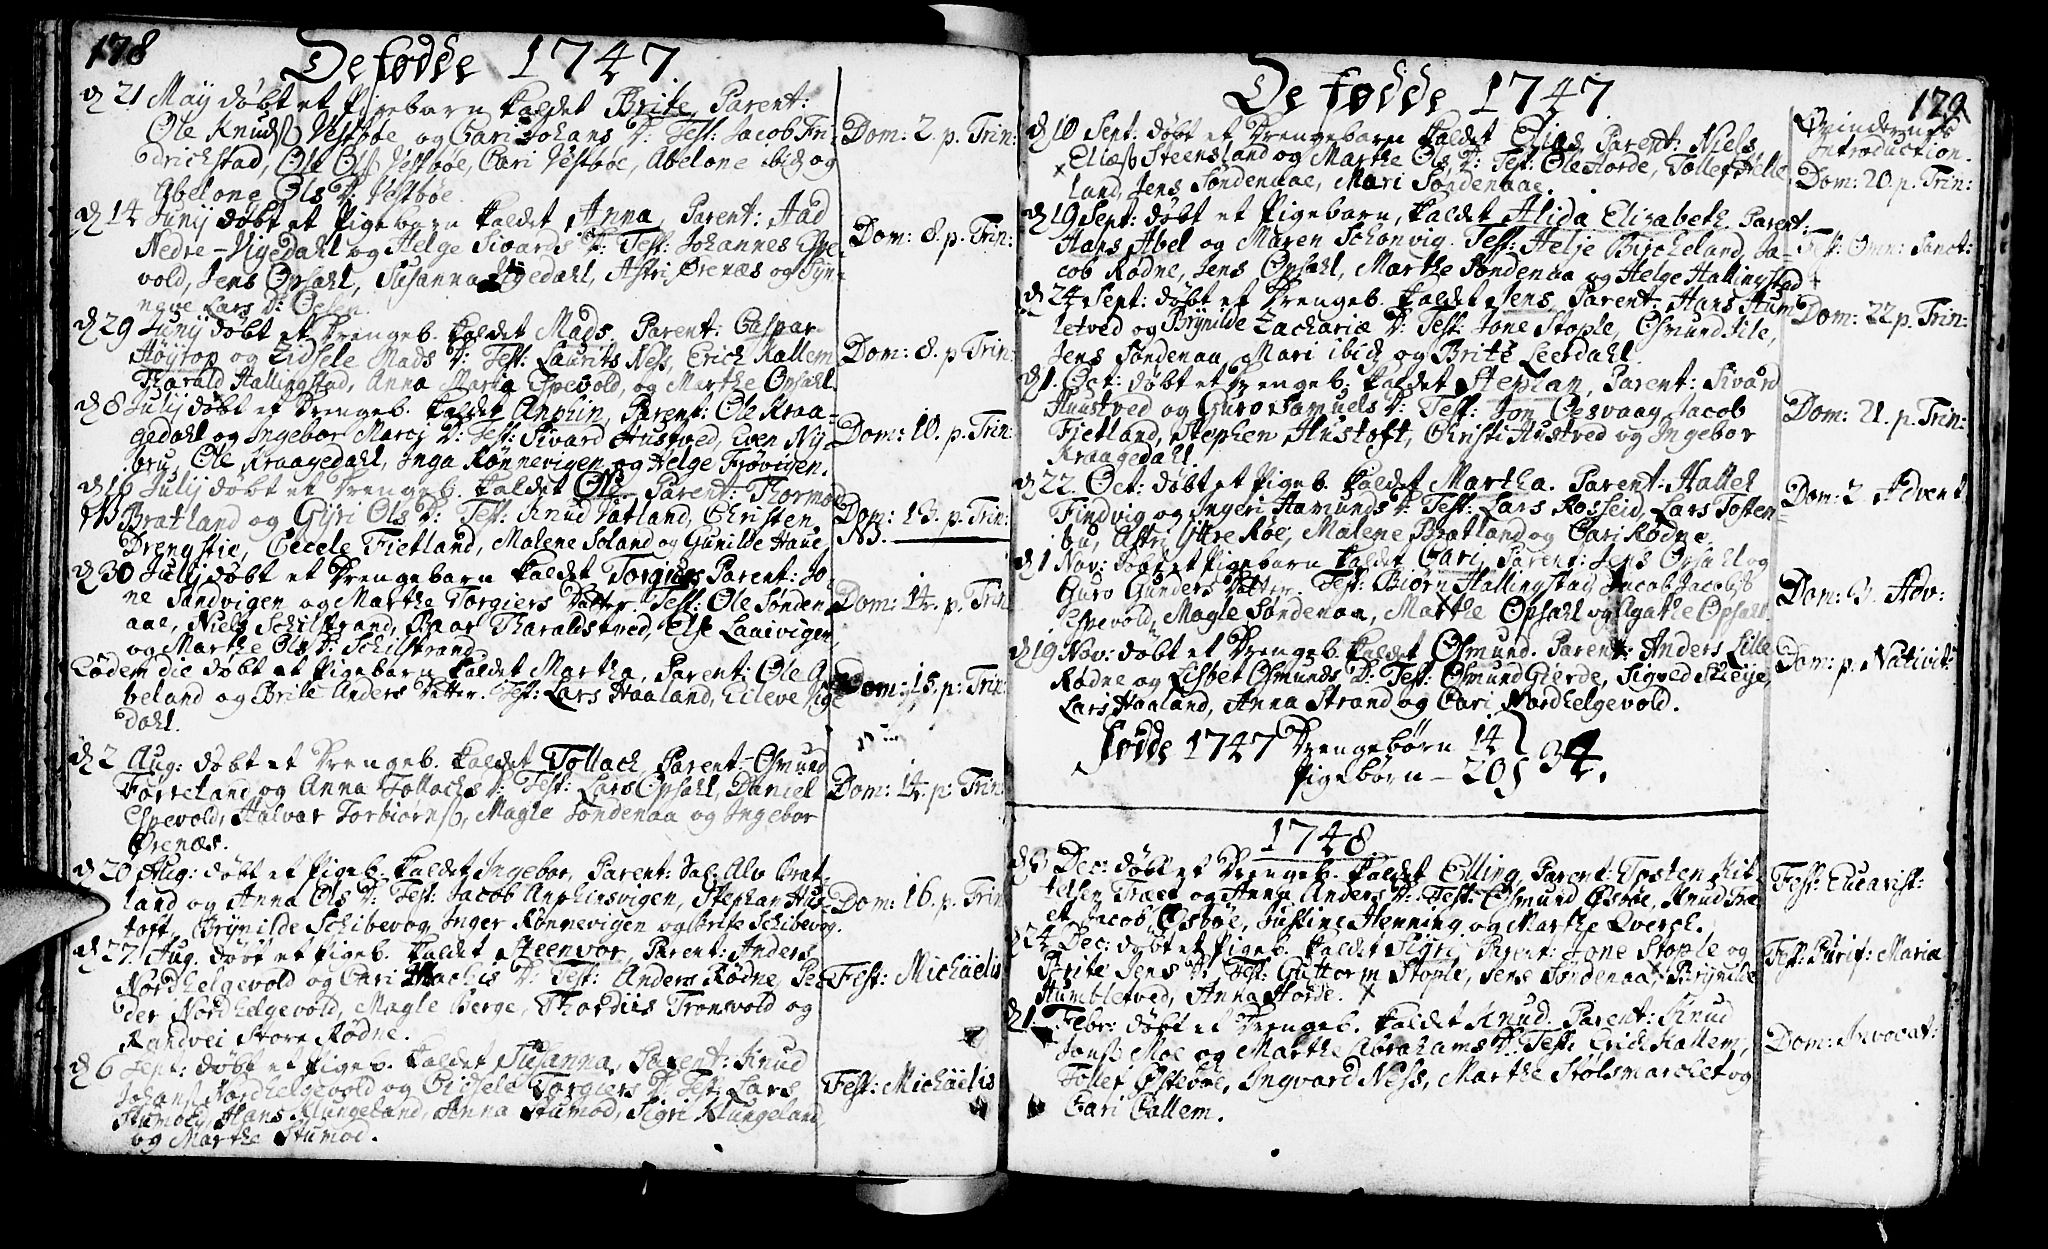 178
De fødde 1747.
d 21 Maij døbt et Pigebarn kaldet Brite, Parent:
Ole Knuds Vestbøe og Cari Johans D: Test: Jacob Fri-
drichstad, Ole Ols Vestbøe, Cari Vestbøe, Abelone ibid og
Abelone Ols D: Vestbøe.
Dom: 2. p. Trin:
d 14 Junij døbt et Pigebarn kaldet Anna, Parent: Aad
Nedre-Vigedahl og Helge Sivards D: Test: Johannes Espe-
vold, Jens Opsahl, Susanna Vigedahl, Astri Ørenæs og Syn-
neve Lars D:
Dom: 8. p. Trin:
d 29 Junij døbt et Drengeb. kaldet Mads, Parent: Caspar
Høijtop og Zidsele Mads D: Test: Laurits Ness, Erich Kallem
Tharald Hallingstad, Anna Maria Espevold, og Marthe Opsahl.
Dom: 8. p Trin:
d 8 Julij døbt et Drengeb. kaldet Anphin, Parent: Ole Kraa-
gedahl og Ingebor Marcj D: Test: Sivard Hustved, Even Nij-
bru, Ole Kraagedahl, Inga Rønnevigen og Helge Fjøvigen.
Dom: 10. p. Trin:
d 16 Julij døbt et Drengeb. kaldet Ole Parent: Thormod
NB Bratland og Gijri Ols D: Test: Knud Vatland, Christen
Drengstie, Cecele Fietland, Malene Soland og Gunilde Haue
Dom: 13. p. Trin:
NB.
d 30 Julij døbt et Drengebarn kaldet Torgiers Parent: Jo-
ne Sandvigen og Marthe Torgiers Datter. Test: Ole Sønden
aae, Niels Schilstrand, Baar Tharaldstved, Else Laaivigen
og Marthe Ols D: Schilstrand
Dom: 14. p. Trin
Eodem die døbt et Pigebarn kaldet Martha, Parent: Ole A-
beland og Brite Anders Datter. Test: Lars Haaland, Eileve Vige
dahl.
Dom: 15. p: Trin:
d 2 Aug: døbt et Drengeb. kaldet Tollach, Parent: Osmund
Førreland og Anna Tollachs D: Test: Lars Opsahl, Daniel
Espevold, Halvar Torbiørns, Magle Søndenaa og Ingebor
Ørenæs.
Dom: 14. p: Trin:
d 20 Aug: døbt et Pigeb. kaldet Ingebor, Parent: Sal: Alv Brat-
land og Anna Ols D: Test: Jacob Anphinsvigen, Stephan Hus-
toft, Brijnilde Schibevog, Inger Rønnevigen og Brite Schibevog.
Dom: 16. p. Trin
d 27 Aug. døbt et Pigeb. kaldet Steenvor, Parent: Anders
Nordhelgevold og Cari D: Test: Anders Rødne, Pe-
der Nordhelgevold, Magle Berge, Thordiis Tronsvold og
Randvei Store Rødne.
Fest: Michäelis
d 6 Sept: døbt et Pigeb. kaldet Susanna, Parent: Knud
Johans Nordhelgevold og Gidsele Torgiers D: Test: Lars
Stumoe, Hans Klungeland, Anna Stumod, Sigri Klungeland
og Marthe Stumod.
Fest: Michäelis
179
De fødde 1747
Qvindernes
Introduction.
d 10 Sept: døbt et Drengebarn kaldet Elias, Parent: Niels
x Eliæs Steensland og Marthe Ols D: Test: Ole Horde, Tollef Hille
land, Jens Søndenaae, Mari Søndenaae.
Dom: 20. p. Trin:
d 19 Sept: døbt et Pigebarn, kaldet Alida Elisabeth. Parent:
Hans Abel og Maren Schonvig. Test: Helje Bircheland, Ja-
cob Rødne, Jens Opsahl, Marthe Søndenaa og Helge Hallingstad
Fest: Omn: Sanct:
d 24 Sept: døbt et Drengeb. kaldet Jens Parent: Hans Hum
letved og Brijnilde Zachariæ D: Test: Jone Stople, Osmund Sile,
Jens Søndenaa, Mari ibid og Brite Leerdahl.
Dom: 22 p. Trin:
d 1. Oct: døbt et Drengeb: kaldet Stephan, Parent: Sivard
Huustved og Guro Samuels D: Test: Jon Oesvaag, Jacob
Fietland, Stephen Hustoft, Christi Hustved og Ingebor
Kraagedahl.
Dom: 21. p. Trin:
d 22. Oct: døbt et Pigeb. kaldet Martha. Parent: Halleh
Findvig og Ingeri Hamunds D: Test: Lars Rosseid, Lars Tosten-
bu, Astri Ittre Røe, Malene Bratland og Cari Rødne.
Dom: 2. Advent
d 1 Nov: døbt et Pigebarn kaldet Cari, Parent: Jens Opsahl og
Guro Gunders Datter. Test: Biørn Hallingstad, Jacob Jacobs
Espevold, Magle Søndenaa, Marthe Opsahl og Agathe Opsahl.
Dom: 3. Adv:
d 19 Nov: døbt et Drengeb. kaldet Osmund. Parent: Anders Lille
Rødne og Lisbet Osmunds D: Test: Osmund Gierde, Sigved Skeije,
Lars Haaland, Anna Strand og Cari Nordhelgevold.
Dom: p. Nativit:
Fødde 1747 Drengebørn 14
Pigebørn - 20 } 34.
1748
d 3 Dec: døbt et Drengeb. kaldet Elling, Parent: Tosten Kit-
telsen Træet og Anna Anders D: Test: Osmund Østbøe, Knud Træ-
et, Jacob Østbøe, Justine Henning og Marthe Qverch.
Fest: Eucarist:
d 24 Dec: døbt et Pigeb. kaldet Sigri, Parent: Jone Stople og
Brite Jens D: Test: Guttorm Stople, Jens Søndenaa, Brijnilde
Humbletved, Anna Horde. x
Fest: Purif: Maria
d 1. Febr: døbt et Drengeb. kaldet Knud. Parent: Knud
Jons Moe og Marthe Abrahams D: Test: Erich Kallem,
Tollef Østebøe, Ingvard Ness, Marthe Stølsmarchet og
Cari Callem.
Dom: Invocat: